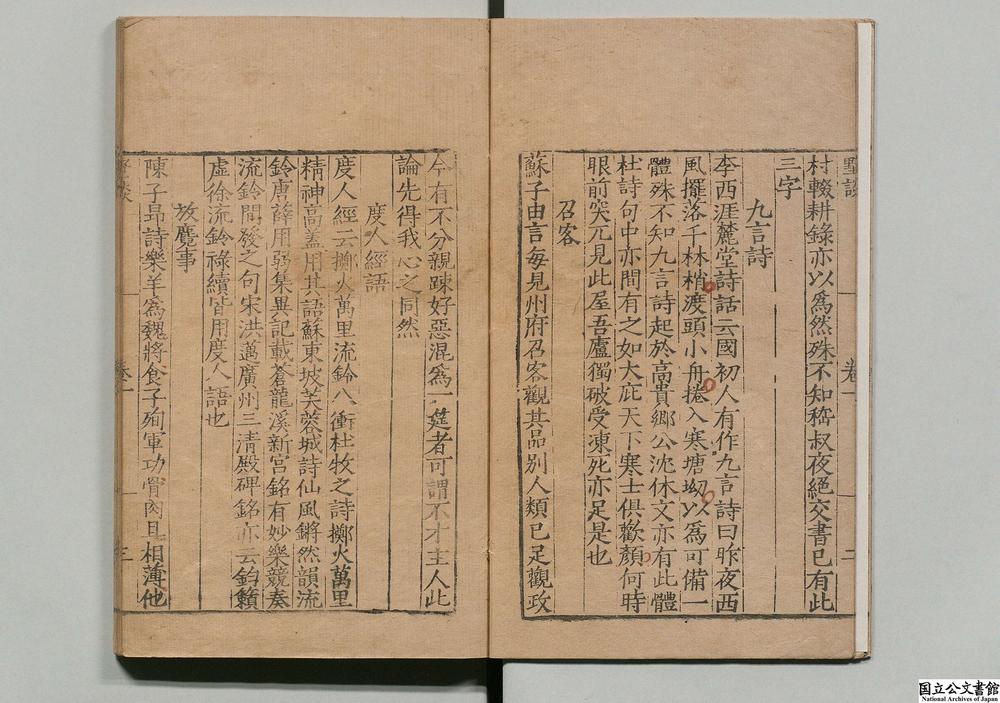 村輟耕錄亦以爲然殊不知嵇叔夜絕交書已有此
三字
九言詩
李西涯麓堂詩話云國初人有作九言詩曰昨夜西
風擺落千林梢渡頭小舟捲入寒塘坳以爲可備一
體殊不知九言詩起於高貴鄉公沈休文亦有此體
杜詩句中亦間有之如大庇天下寒士俱歡顏何時
眼前突兀見此屋吾廬獨破受凍死亦足是也
召客
蘇子由言每見州府召客觀其品別人類已足觀政
今有不分親踈好惡混爲一筵者可謂不才主人此
論先得我心之同然
度人經語
度人經云擲火萬里流鈴八衝杜牧之詩擲火萬里
精神高蓋用其語蘇東坡芙蓉城詩仙風鏘然韻流
鈴唐薛用弱集異記載蒼龍溪新宮銘有妙樂競奏
流鈴間發之句宋洪邁廣州三清殿碑銘亦云鈞籟
虛徐流鈴祿續皆用度人語也
放麑事
陳子昻詩樂羊爲魏將食子殉軍功骨肉且相薄他
卷一
二
卷一
三
国立公文書館
National Archives of Japan